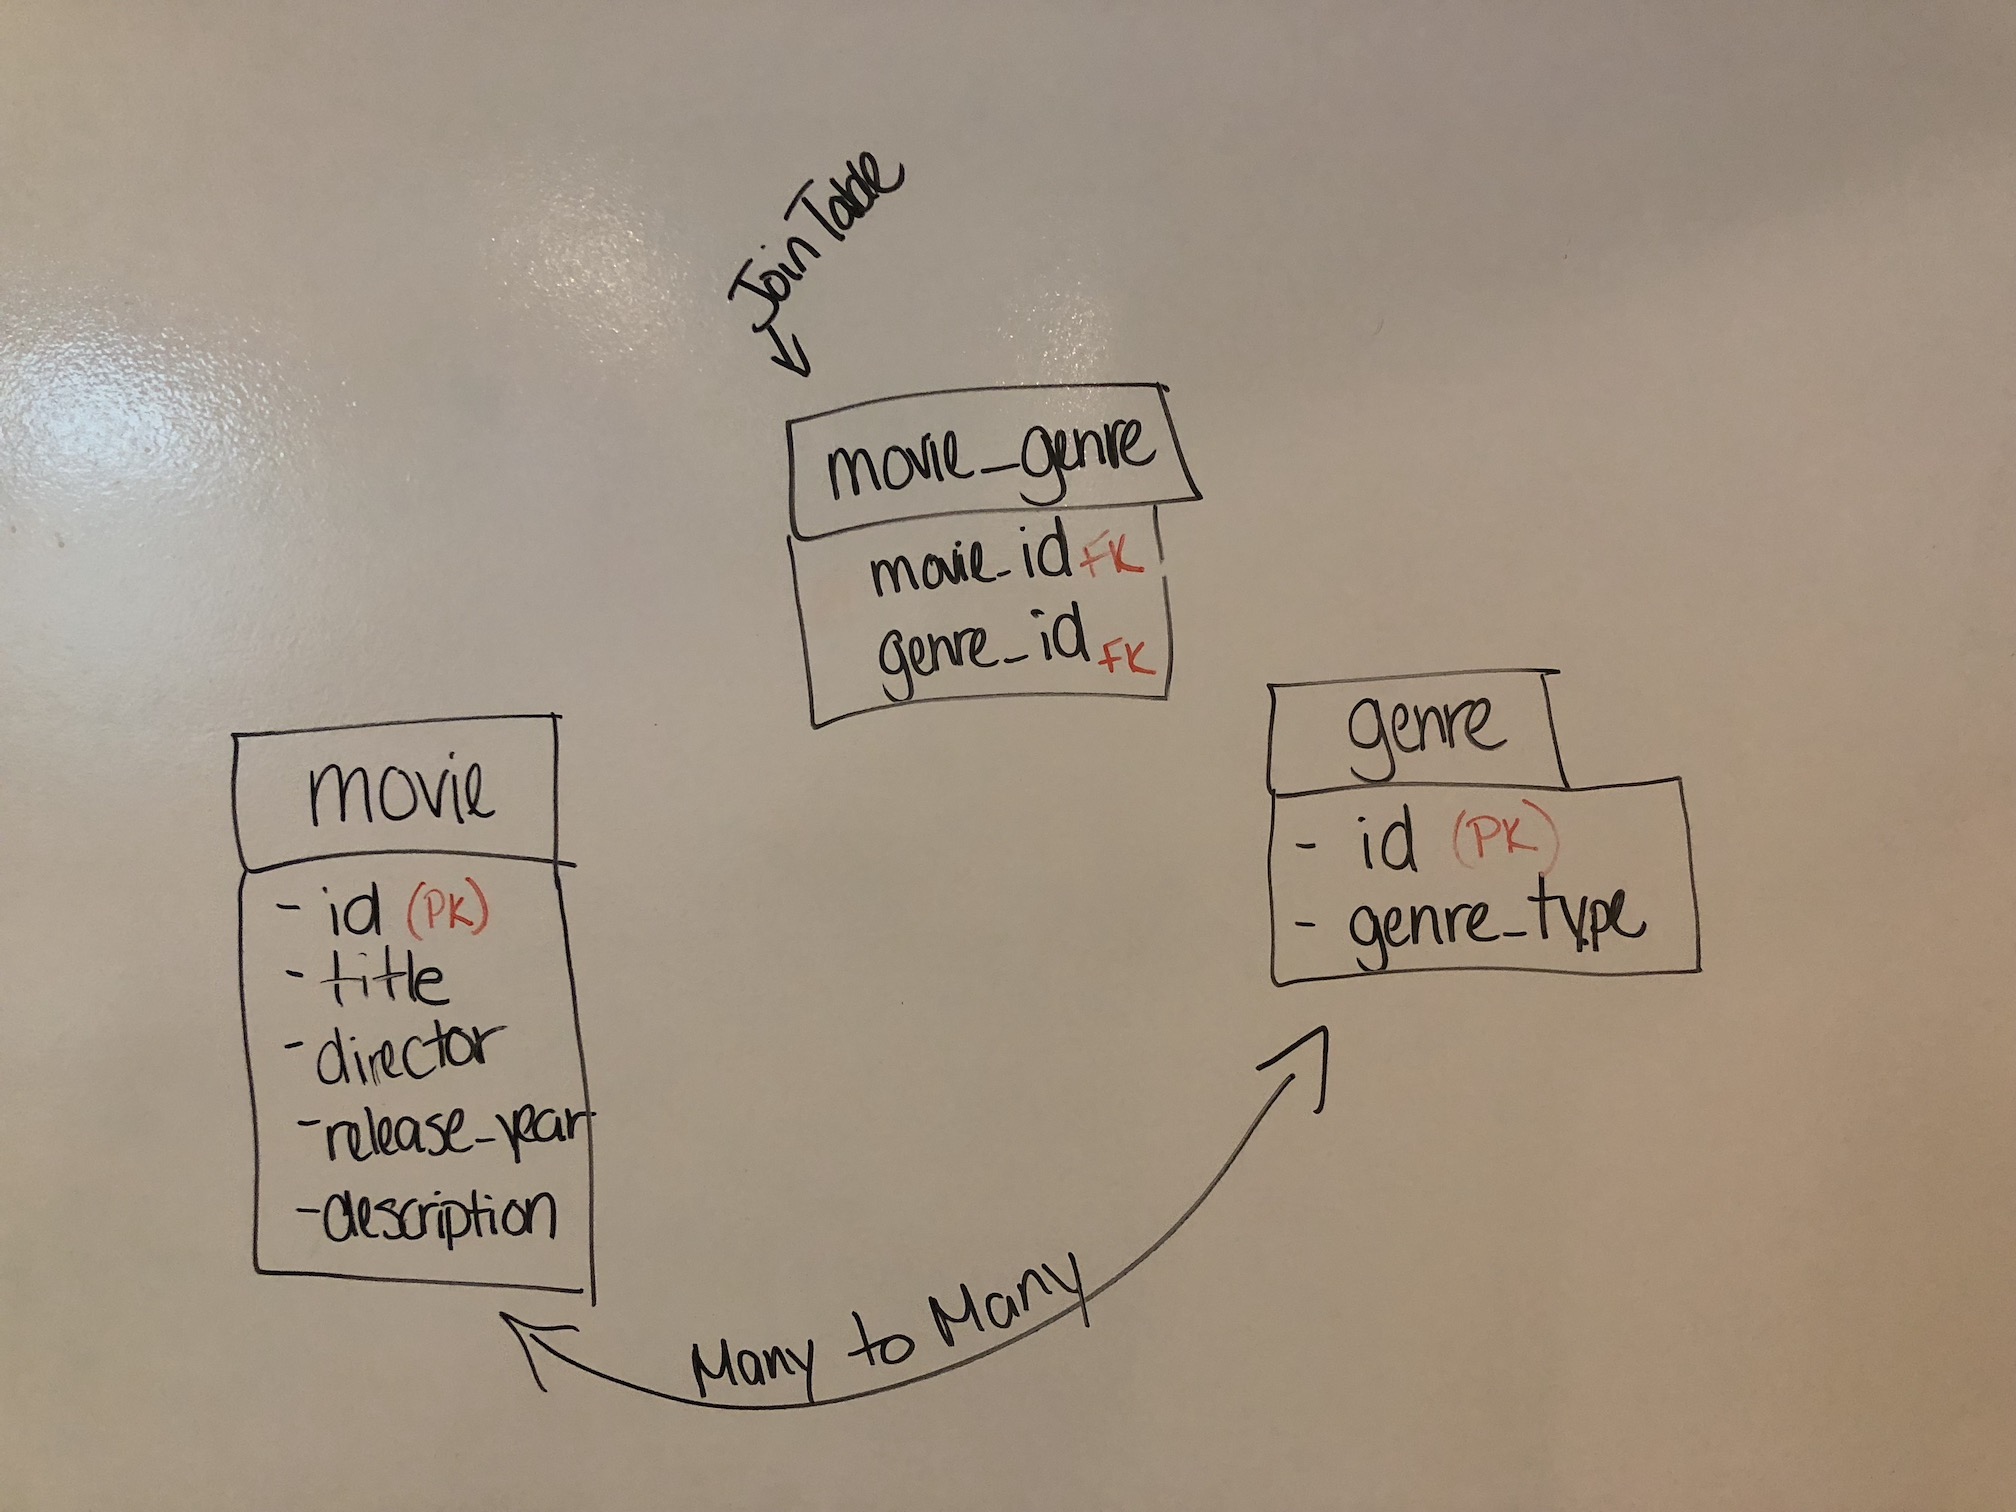 Join Table
movie_genre
movie_id FK
genre_id FK
movie
- id (PK)
- title
- director
- release_year
- description
genre
- id (PK)
- genre_type
Many to Many